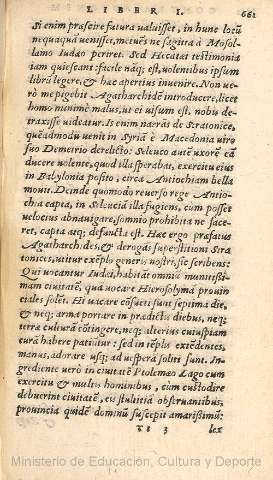 LIBER I. 661
Si enim præscire futura valuisset, in hunc locū
nequaquā venisset, metuēs ne sagitta à Mosol-
lamo Iudæo periret. Sed Hecatæi testimonia
iam quiescant: facile nāq; est, volentibus ipsum
librū legere, & hæc apertius invenire. Non ve-
rò me pigebit Agatharchidē introducere, licet
homo minimè malus, ut ei visum est, nobis de-
traxisse videatur. Is enim narrās de Stratonice,
quēadmodū venit in Syriā è Macedonia viro
suo Demetrio derelicto: Seleuco autē uxorē eā
ducere volente, quod illa sperabat, exercitu eius
in Babylonia posito, circa Antiochiam bella
mouit. Deinde quomodo reverso rege Antio-
chia capta, in Seleuciā illa fugiens, cum posset
velocius abnavigare, somnio prohibita ne face-
ret, capta atq; defuncta est. Hæc ergo præfatus
Agatharchides, & derogās superstitioni Stra-
tonices, utitur exēplo generis nostri, sic scribens:
Qui vocantur Iudæi, habitāt omniū munitissi-
mam ciuitatē, quā vocare Hierosolyma prouin-
ciales solēt. Hi vacare cōsueti sunt septima die,
& neq; arma portare in prædictis diebus, neq;
terræ culturā cōtingere, neq; alterius cuiuspiam
curā habere patiūtur: sed in tēplis extēdentes
manus, adorare usq; ad vesperā soliti sunt. In-
grediente verò in ciuitatē Ptolemæo Lago cum
exercitu & multis hominibus, cùm custodire
debuerint ciuitatē, eis stultitiā obseruantibus,
prouincia quidē dominū suscepit amarissimū:
TT 3 lex
Ministerio de Educación, Cultura y Deporte